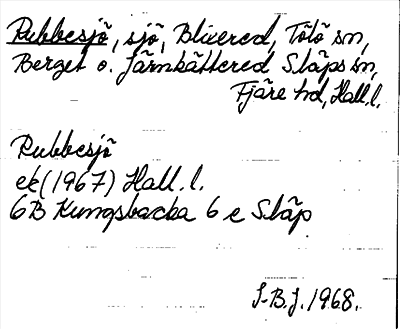 Rubbesjö, sjö, Blixered, Tölö sn,
Berget o. Järnkättered Släps sn,
Fjäre hd, Hall.l.
Rubbesjö
ek (1967) Hall.l.
6B Kungsbacka 6 e Släp
S-B.J. 1968.